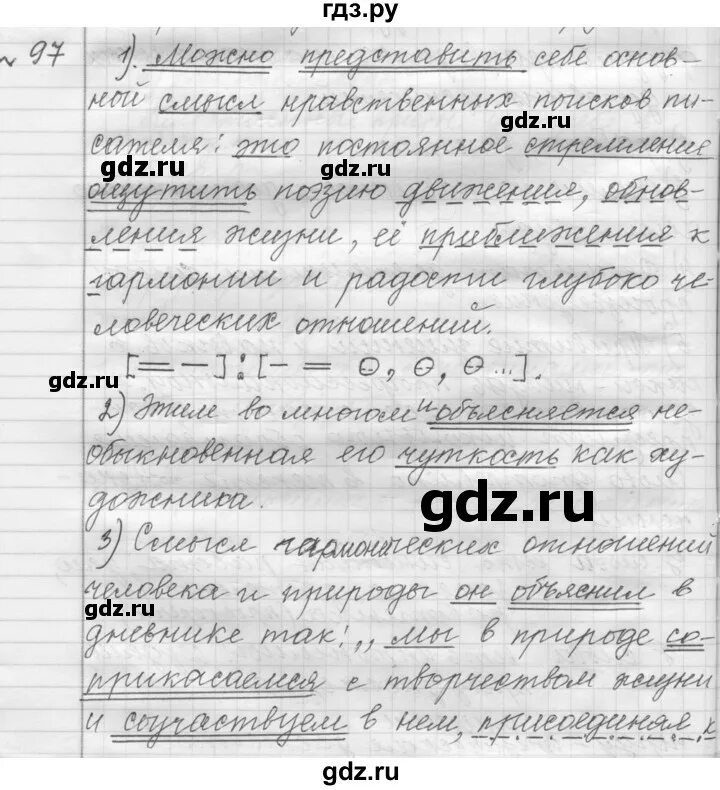 гдз.ру
№ 97 1). Можно представить себе основ-
ной смысл нравственных поисков пи-
gdz.ru
сателя: это постоянное стремление
gdz.ru
ощутить поэзию движения, обнов-
ления жизни, её приближения к
гармонии и радости глубоко че-
gdz.ru
ловеческих отношений.
[= –] : [– = ⊖, ⊖, ⊖ ...].
gdz.ru
2) Этим во многом и объясняется не-
обыкновенная его чуткость как ху-
дожника.
gdz.ru
3) Смысл гармонических отношений
человека и природы он объяснил в
gdz.ru
дневнике так: ,, мы в природе со-
прикасаемся с творчеством жизни
и соучаствуем в нем, присоединяя к
gdz.ru